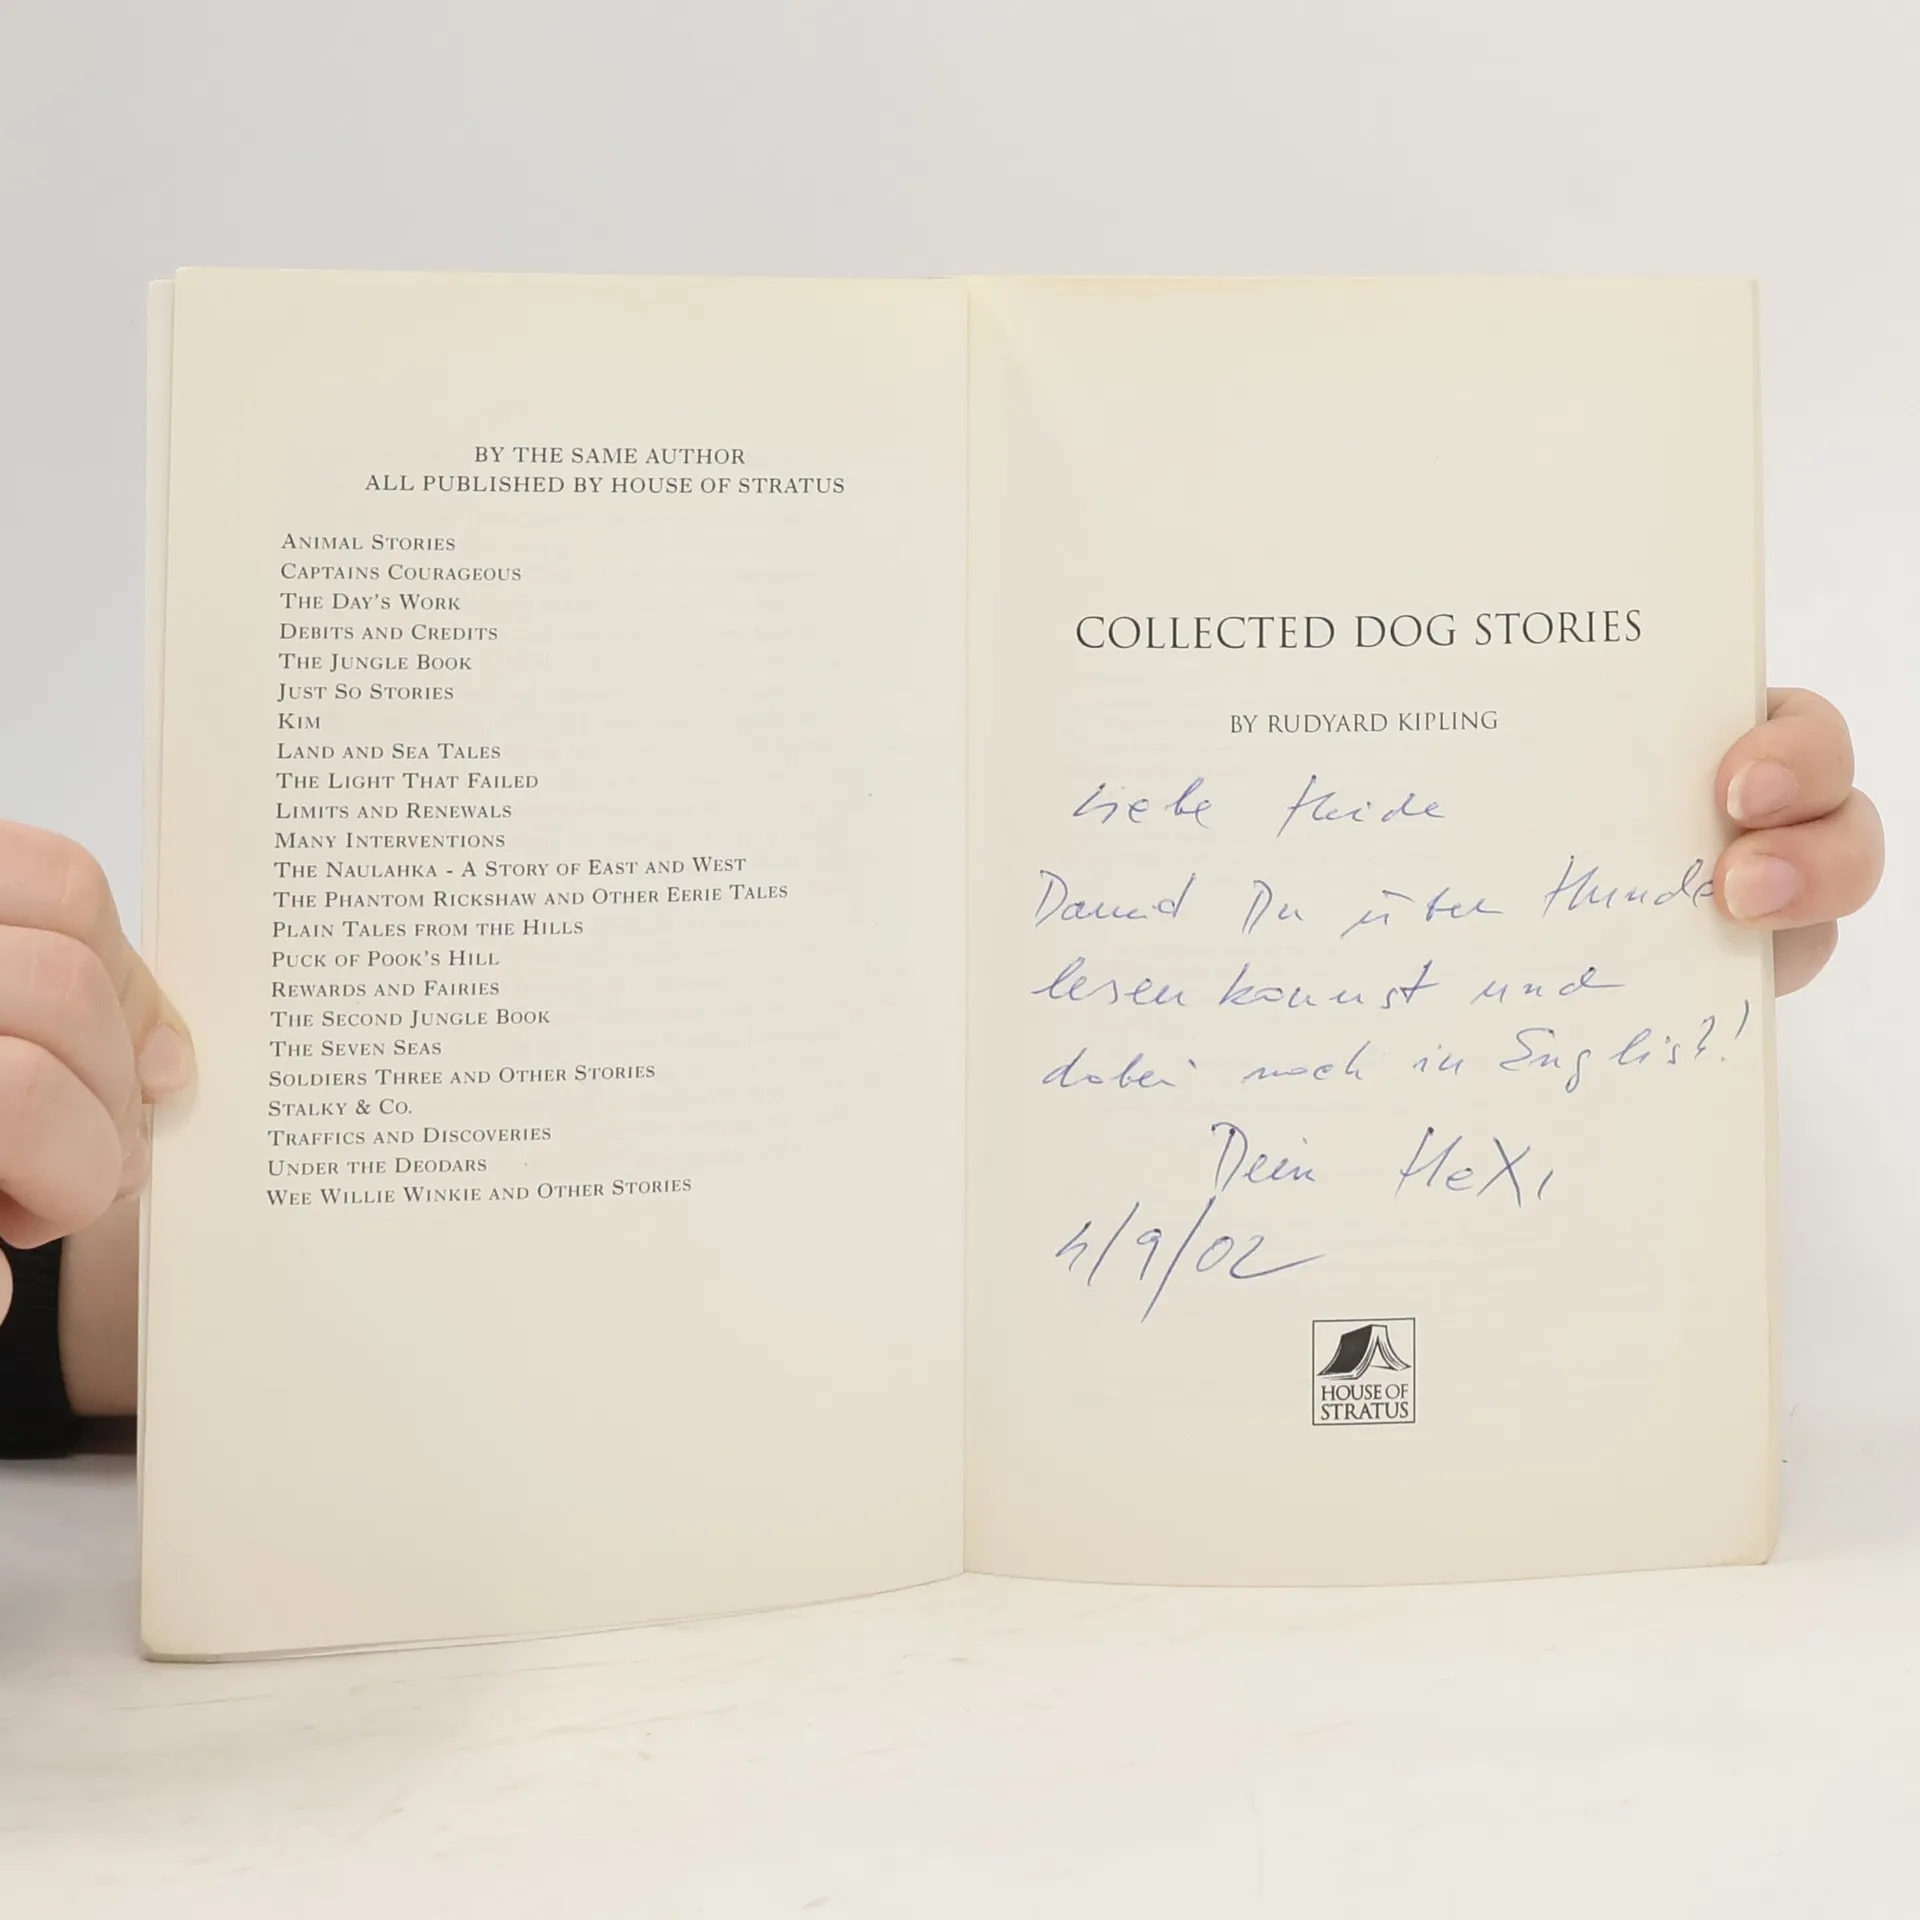 BY THE SAME AUTHOR
ALL PUBLISHED BY HOUSE OF STRATUS
ANIMAL STORIES
CAPTAINS COURAGEOUS
THE DAY'S WORK
DEBITS AND CREDITS
THE JUNGLE BOOK
JUST SO STORIES
KIM
LAND AND SEA TALES
THE LIGHT THAT FAILED
LIMITS AND RENEWALS
MANY INTERVENTIONS
THE NAULAHKA - A STORY OF EAST AND WEST
THE PHANTOM RICKSHAW AND OTHER EERIE TALES
PLAIN TALES FROM THE HILLS
PUCK OF POOK'S HILL
REWARDS AND FAIRIES
THE SECOND JUNGLE BOOK
THE SEVEN SEAS
SOLDIERS THREE AND OTHER STORIES
STALKY & CO.
TRAFFICS AND DISCOVERIES
UNDER THE DEODARS
WEE WILLIE WINKIE AND OTHER STORIES
COLLECTED DOG STORIES
BY RUDYARD KIPLING
Liebe Heide
Damid Du über Hunde
lesen kannst und
dabei noch in English!
Dein HeXi
4/9/02
HOUSE OF
STRATUS